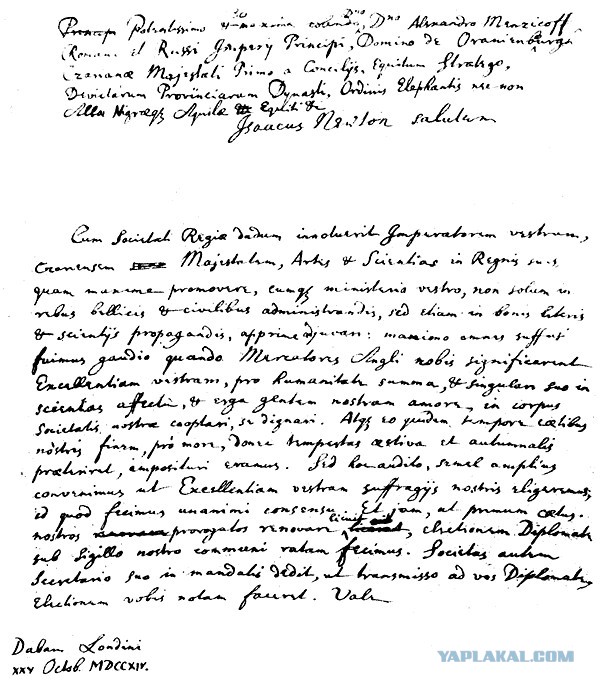 Potentissimo maxime colendo Dno Dno Alexandro Menzicoff
Romani et Russi Imperij Principi, Domino de Oranienburgh
Czareanæ Majestati Primo a Concilijs, Equitum Stratego,
Devictarum Provinciarum Dynasti, Ordinis Elephantis nec non
Albæ Nigræq; Aquilæ Equiti &
Isaacus Newton salutem
Cum Societati Regiæ dudum innotuerit Imperatorem vestrum,
Majestatem, Artes & Scientias in Regnis suis
quam maxime promovere, eumq; ministerio vestro, non solum in
rebus bellicis & civilibus administrandis, sed etiam in bonis literis
& scientijs propagandis, apprime adjuvari: maximo omnes suffusi
fuimus gaudio quando Mercatores Angli nobis significarent
Excellentiam vestram, pro humanitate summa, & singulari suo in
scientias affectu, & erga gentem nostram amore, in corpus
Societatis nostræ cooptari, se dignari. Atq; eo quidem tempore cœtibus
nostris finem, pro more, donec tempestas æstiva et autumnalis
præteriret, imposituri eramus. Sed hoc audito, semel amplius
convenimus ut Excellentiam vestram suffragijs nostris eligeremus;
id quod fecimus unanimi consensu. Et jam, ut primum cœtus
nostros prorogatos renovare licuit, electionem Diplomate
sub sigillo nostro communi ratam fecimus. Societas autem
Secretario suo in mandatis dedit, ut transmisso ad vos Diplomate,
electionem vobis notam faceret. Vale
Dabam Londini
XXV Octob. MDCCXIV.
YAPLAKAL.COM